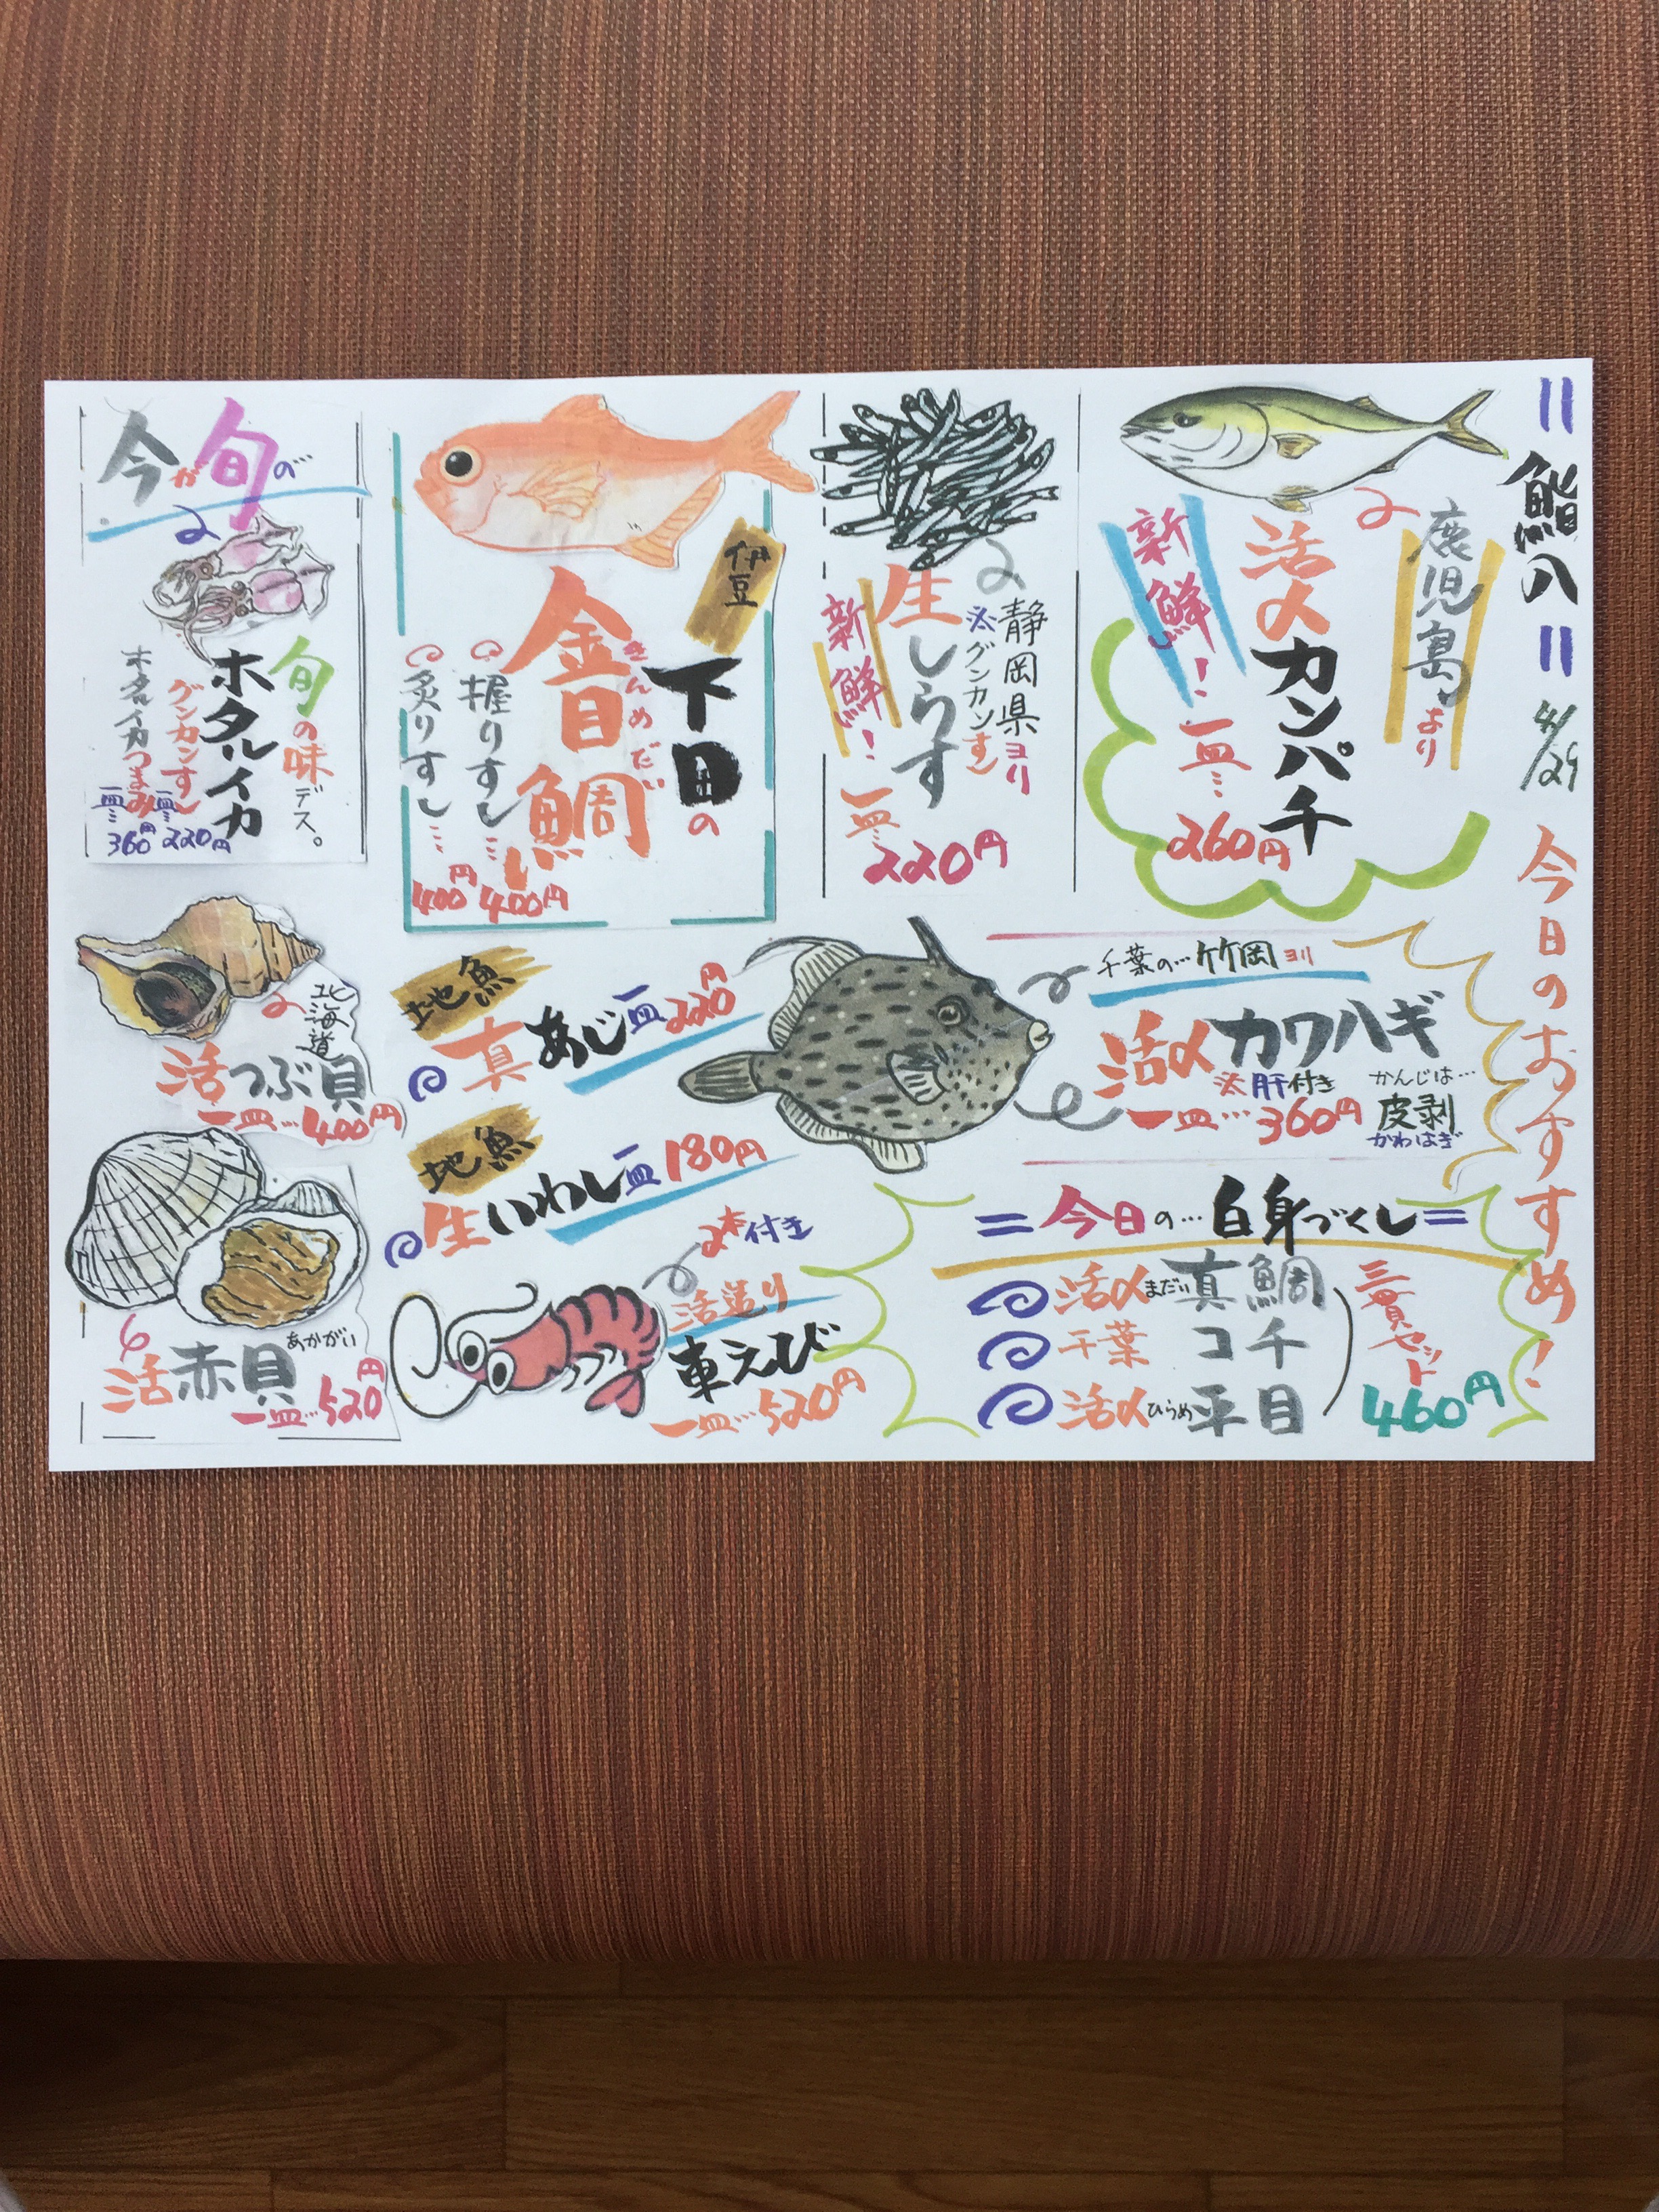 鮨八
4/29
今日のおすすめ!
鹿児島より
活〆
カンパチ
新鮮!
一皿…
260円
静岡県ヨリ
※グンカンすし
生しらす
新鮮!
一皿…
220円
伊豆
下田の
きんめだい
金目鯛
握りすし…
400円
炙りすし…
400円
今が旬の
旬の味デス。
ホタルイカ
グンカンすし
一皿…
220円
ホタルイカつまみ
一皿…
360円
千葉の…竹岡ヨリ
活〆カワハギ
※肝付き
一皿…360円
かんじは…
皮剥
かわはぎ
地魚
真あじ一皿220円
地魚
生いわし一皿180円
北海道
活つぶ貝
一皿…400円
あかがい
活赤貝
一皿…520円
2本付き
活造り
車えび
一皿…520円
今日の…白身づくし
活〆まだい真鯛
千葉コチ
活〆ひらめ平目
三貫セット
460円